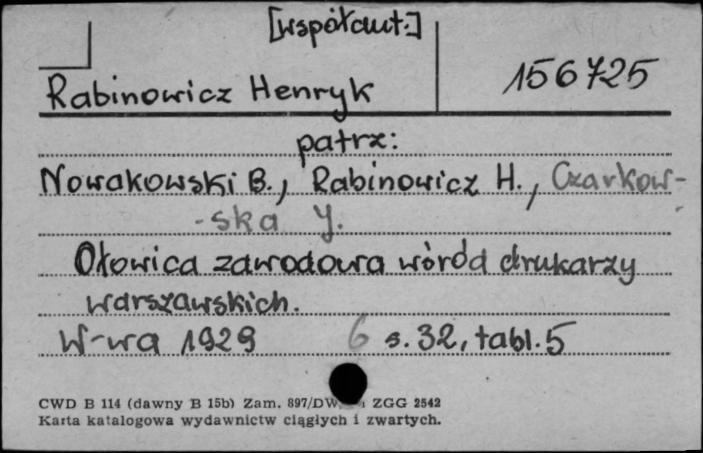 [współaut.]
Rabinowicz Henryk 156725
patrz:
Nowakowski B., Rabinowicz H., Czarkow-
-ska J.
Ołowica zawodowa wśród drukarzy
warszawskich.
W-wa 1929 6 s. 32, tabl. 5
CWD B 114 (dawny B 15b) Zam. 897/DW ZGG 2542
Karta katalogowa wydawnictw ciągłych i zwartych.